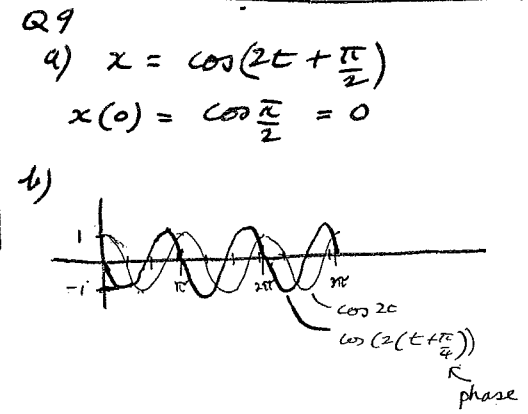 Q9
a) x = cos(2t + π/2)
x(0) = cos π/2 = 0
b)
1
-1
π 2π 3π
cos 2t
cos (2(t+π/4))
phase